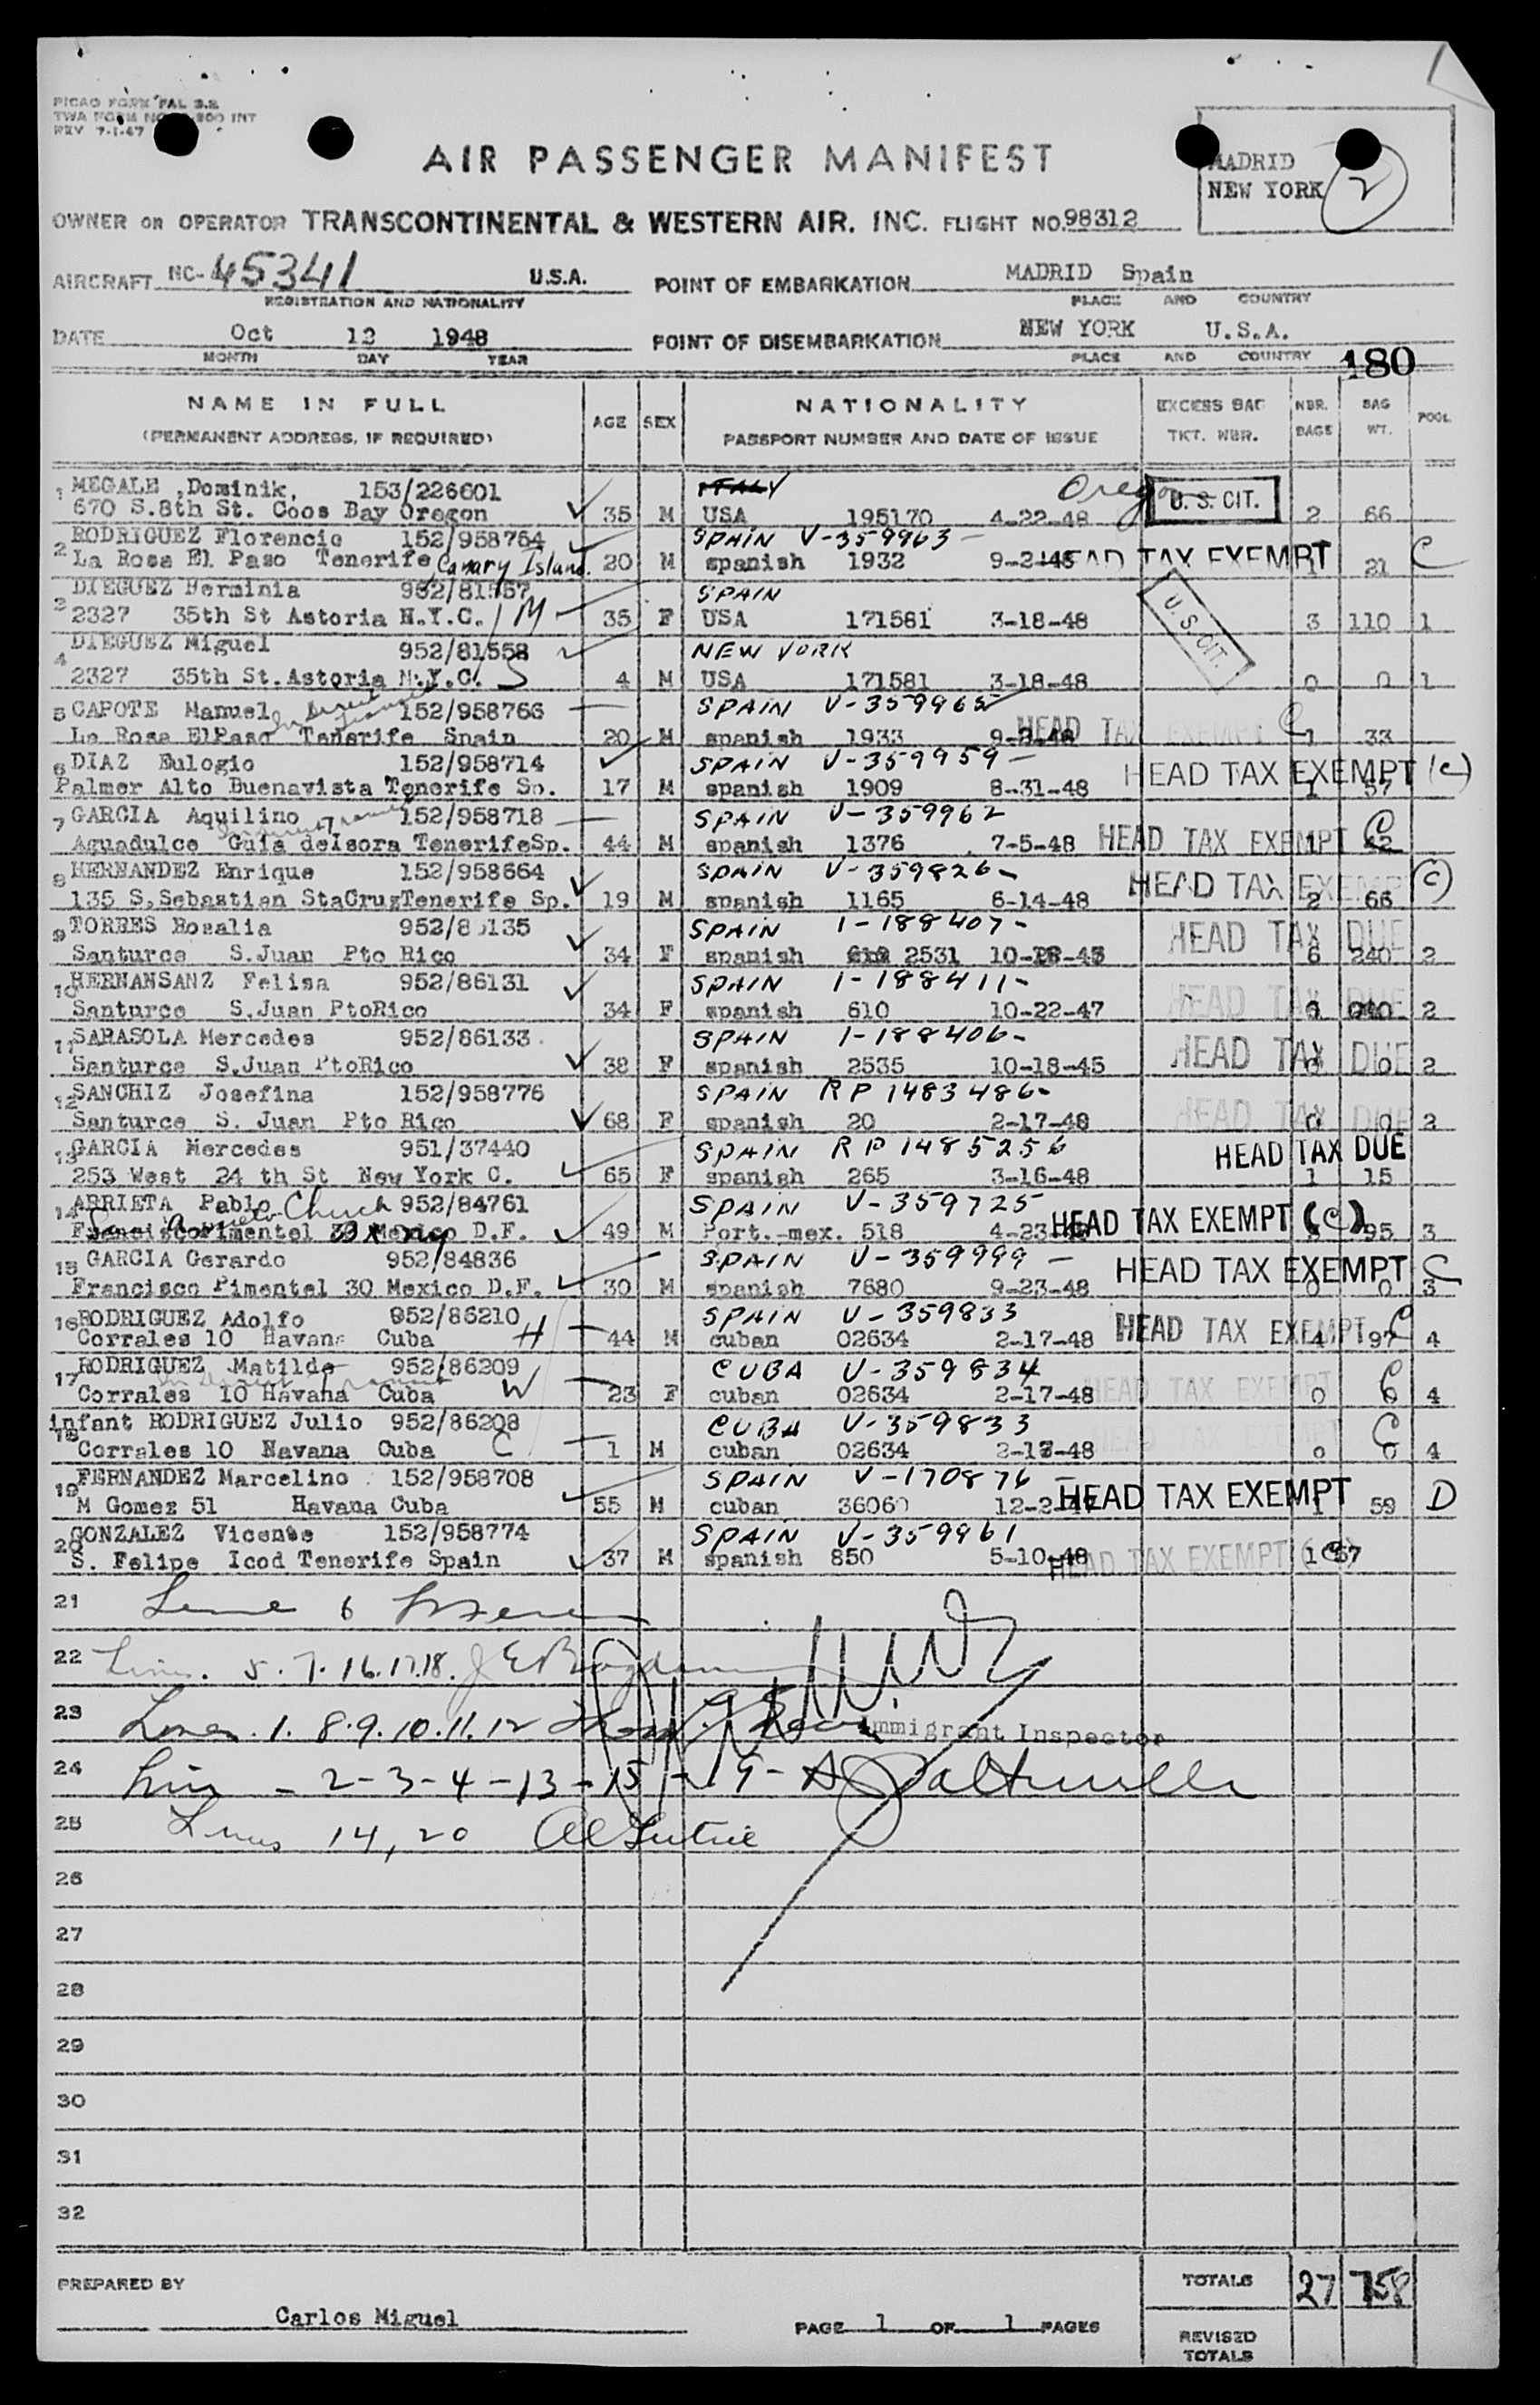 PICAO FORM FAL 3.2
TWA FORM NO 800 INT
REV 7-1-47
AIR PASSENGER MANIFEST
MADRID
NEW YORK
2
OWNER OR OPERATOR TRANSCONTINENTAL & WESTERN AIR. INC. FLIGHT NO. 98312
AIRCRAFT NC-45341 U.S.A. POINT OF EMBARKATION MADRID Spain
REGISTRATION AND NATIONALITY PLACE AND COUNTRY
DATE Oct 12 1948 POINT OF DISEMBARKATION NEW YORK U.S.A.
MONTH DAY YEAR PLACE AND COUNTRY
180
NAME IN FULL AGE SEX NATIONALITY EXCESS BAG NBR. BAG POOL
(PERMANENT ADDRESS, IF REQUIRED) PASSPORT NUMBER AND DATE OF ISSUE TKT. NBR. BAGS WT.
1 MEGALE ,Dominik, 153/226601 ITALY Oregon U.S. CIT.
670 S.8th St. Coos Bay Oregon 35 M USA 195170 4-22-48 2 66
2 RODRIGUEZ Florencio 152/958764 SPAIN V-359963
La Rosa El Paso Tenerife Canary Island. 20 M spanish 1932 9-2-48 HEAD TAX EXEMPT 1 21 C
3 DIEGUEZ Herminia 952/81557 SPAIN
2327 35th St Astoria N.Y.C. M 35 F USA 171581 3-18-48 U.S. CIT. 3 110 1
4 DIEGUEZ Miguel 952/81558 NEW YORK
2327 35th St.Astoria N.Y.C. S 4 M USA 171581 3-18-48 0 0 1
5 CAPOTE Manuel 152/958766 SPAIN V-359965
La Rosa ElPaso Tenerife Spain 20 M spanish 1933 HEAD TAX EXEMPT C 1 33
6 DIAZ Eulogio 152/958714 SPAIN V-359959
Palmer Alto Buenavista Tenerife Sp. 17 M spanish 1909 8-31-48 HEAD TAX EXEMPT (C) 1 57
7 GARCIA Aquilino 152/958718 SPAIN V-359962
Aguadulce Guia deIsora TenerifeSp. 44 M spanish 1376 7-5-48 HEAD TAX EXEMPT C 1
8 HERNANDEZ Enrique 152/958664 SPAIN V-359826
135 S.Sebastian StaCruzTenerife Sp. 19 M spanish 1165 6-14-48 HEAD TAX EXEMPT (C) 2 66
9 TORRES Rosalia SPAIN 1-188407
Santurce S.Juan Pto Rico 34 F spanish 2531 HEAD TAX DUE 6 240 2
10 HERNANSANZ Felisa 952/86131 SPAIN 1-188411
Santurce S.Juan PtoRico 34 F spanish 610 10-22-47 HEAD TAX DUE 2
11 SARASOLA Mercedes 952/86133 SPAIN 1-188406
Santurce S.Juan PtoRico 38 F spanish 2535 10-18-45 HEAD TAX DUE 0 0 2
12 SANCHIZ Josefina 152/958776 SPAIN RP 1483486
Santurce S. Juan Pto Rico 68 F spanish 20 2-17-48 HEAD TAX DUE 0 0 2
13 GARCIA Mercedes 951/37440 SPAIN RP 1485256
253 West 24 th St New York C. 65 F spanish 265 3-16-48 HEAD TAX DUE 1 15
14 ARRIETA Pablo Church 952/84761 SPAIN V-359725
Francisco Pimentel 30 Mexico D.F. 49 M Port.-mex. 518 HEAD TAX EXEMPT (C) 95 3
15 GARCIA Gerardo 952/84836 SPAIN V-359999
Francisco Pimentel 30 Mexico D.F. 30 M spanish 7680 9-23-48 HEAD TAX EXEMPT C 0 0 3
16 RODRIGUEZ Adolfo 952/86210 SPAIN V-359833
Corrales 10 Havana Cuba H 44 M cuban 02634 2-17-48 HEAD TAX EXEMPT C 4 97 4
17 RODRIGUEZ Matilde 952/86209 CUBA V-359834
Corrales 10 Havana Cuba W 23 F cuban 02634 2-17-48 HEAD TAX EXEMPT C 0 0 4
18 infant RODRIGUEZ Julio 952/86208 CUBA V-359833
Corrales 10 Havana Cuba C 1 M cuban 02634 HEAD TAX EXEMPT C 0 0 4
19 FERNANDEZ Marcelino 152/958708 SPAIN V-170876
M Gomez 51 Havana Cuba 55 M cuban 36060 12-2-47 HEAD TAX EXEMPT 1 59 D
20 GONZALEZ Vicente 152/958774 SPAIN V-359961
S. Felipe Icod Tenerife Spain 37 M spanish 850 5-10-48 HEAD TAX EXEMPT (C) 1 57
21 Line 6
22 Lines. 5.7.16.17.18.
23 Lines. 1.8.9.10.11.12 Immigrant Inspector
24 Lines - 2-3-4-13-15-19-
25 Lines 14, 20
26
27
28
29
30
31
32
PREPARED BY TOTALS 27 758
Carlos Miguel PAGE 1 OF 1 PAGES
REVISED
TOTALS